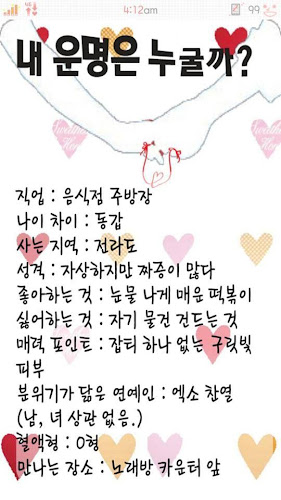 4:12am
99
내 운명은 누굴까?
직업 : 음식점 주방장
나이 차이 : 동갑
사는 지역 : 전라도
성격 : 자상하지만 짜증이 많다
좋아하는 것 : 눈물 나게 매운 떡볶이
싫어하는 것 : 자기 물건 건드는 것
매력 포인트 : 잡티 하나 없는 구릿빛
피부
분위기가 닮은 연예인 : 엑소 찬열
(남, 녀 상관 없음.)
혈액형 : O형
만나는 장소 : 노래방 카운터 앞